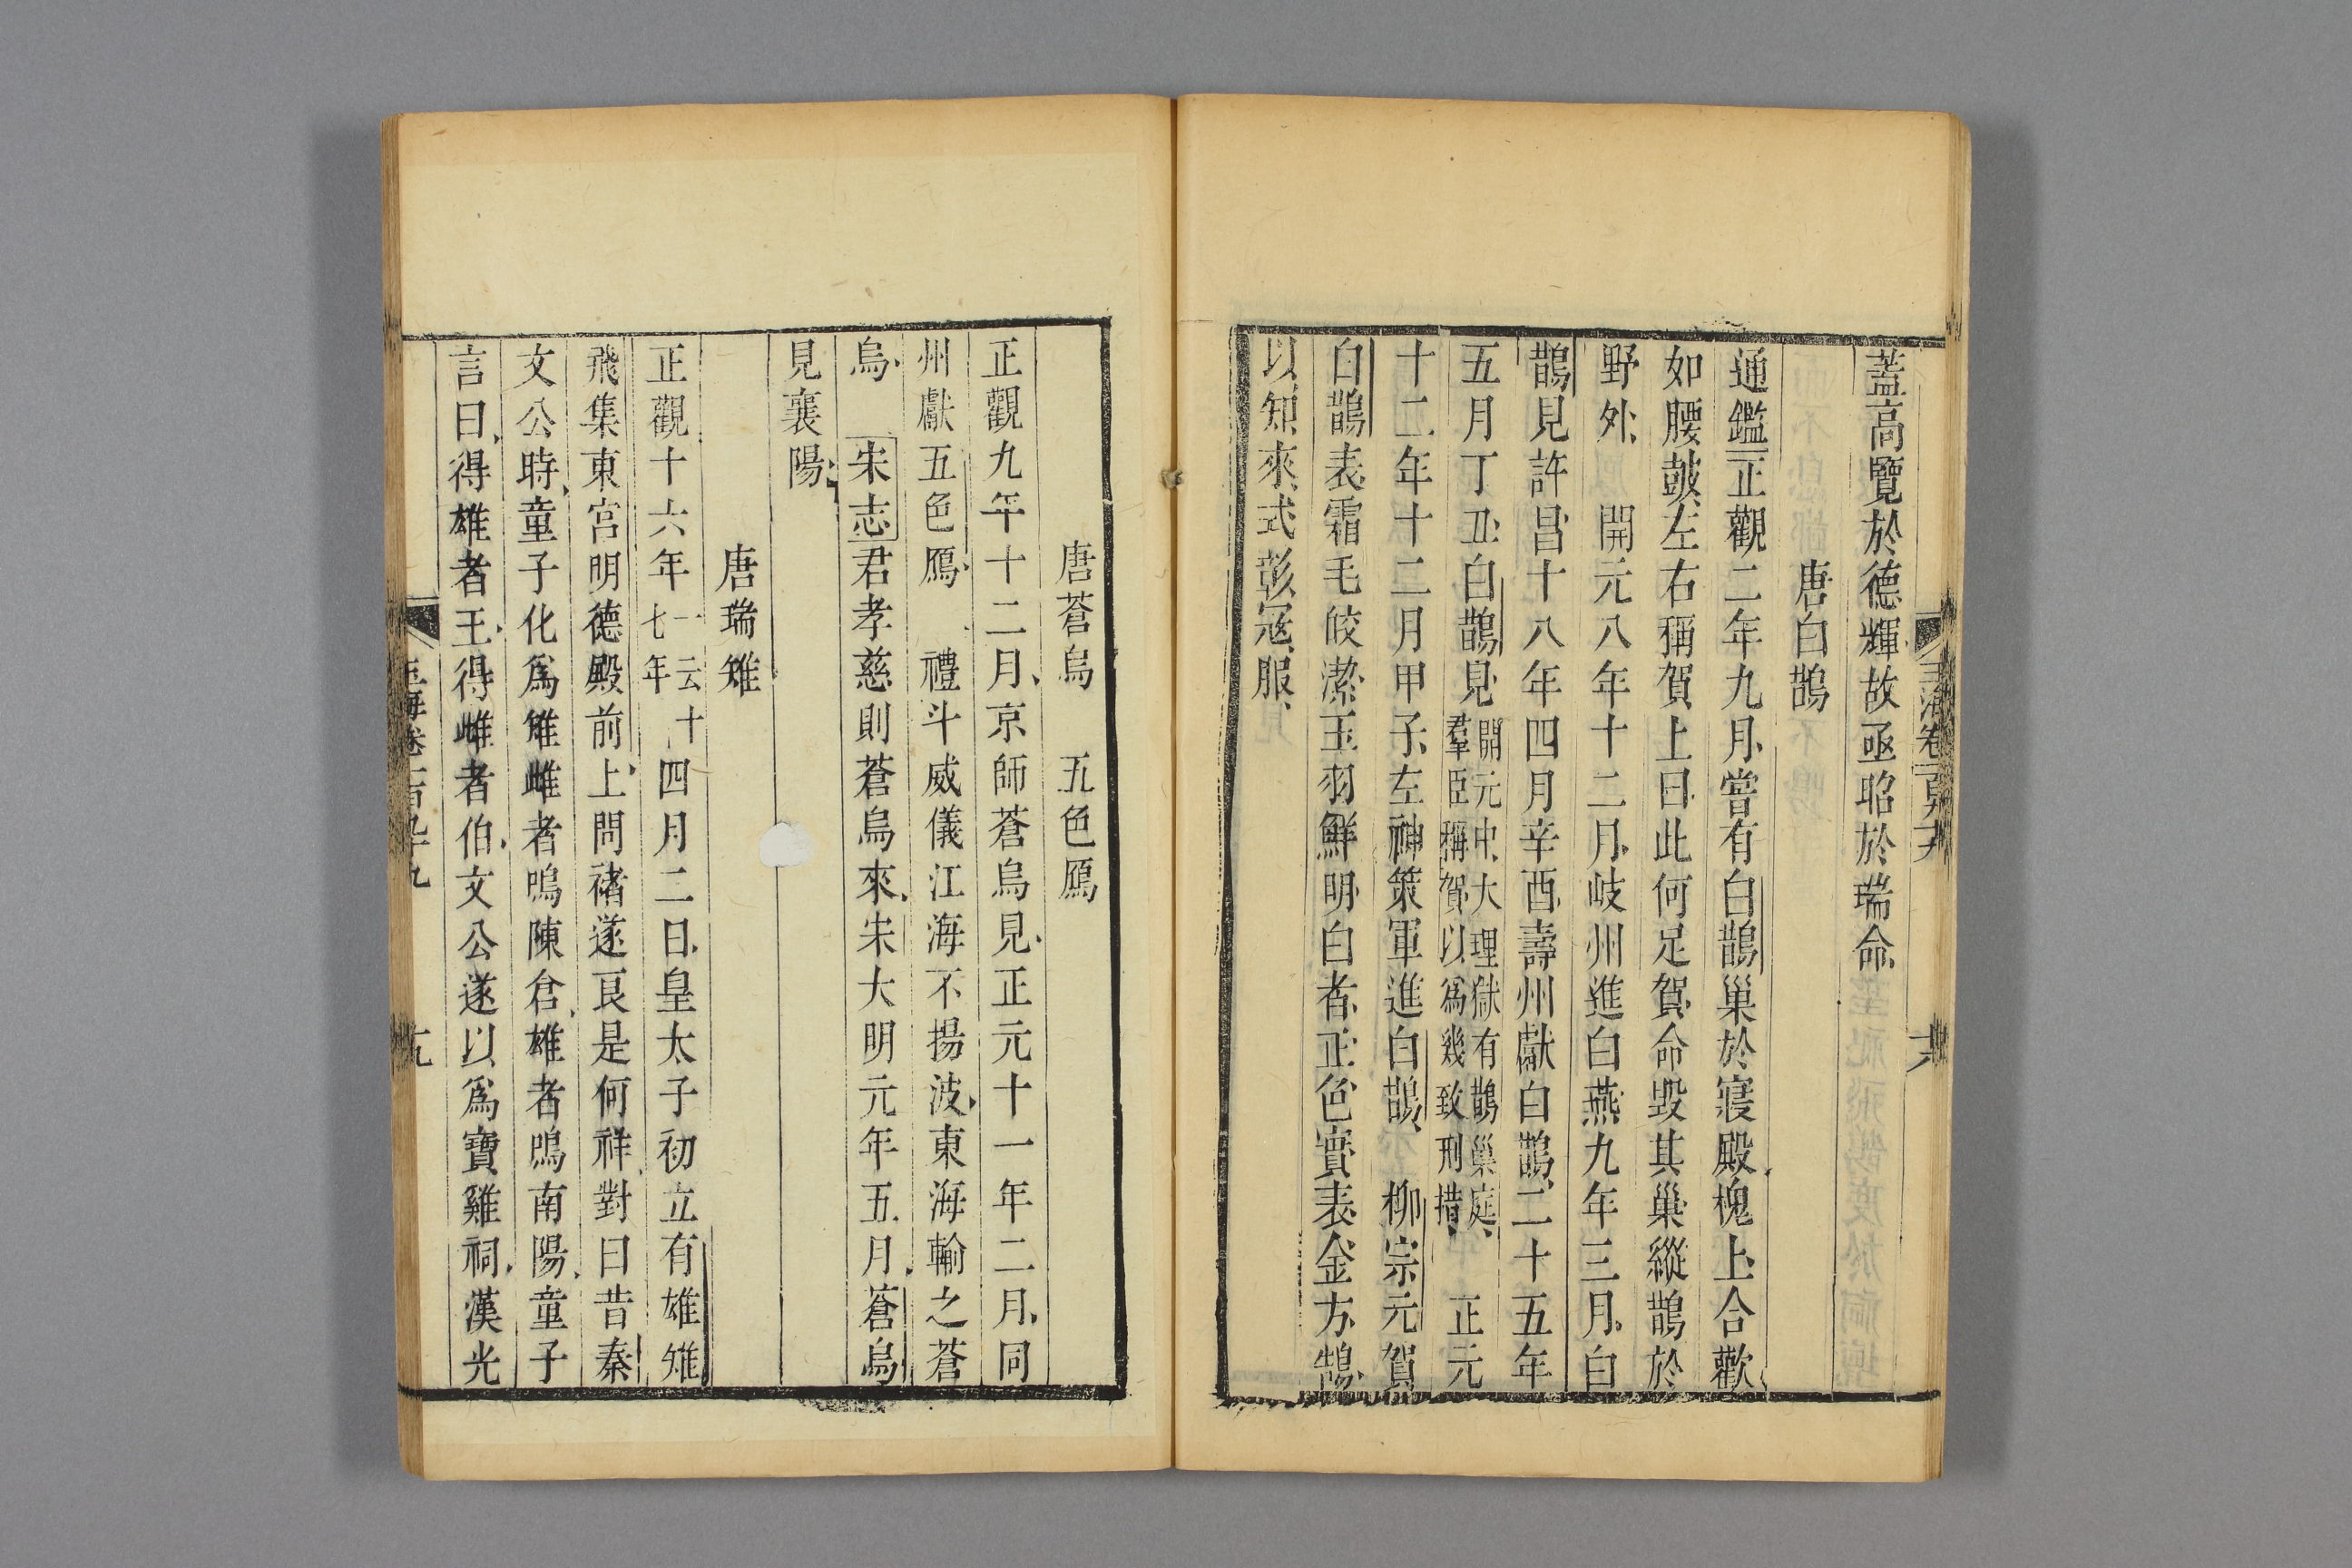 蓋高覽於德輝故亟昭於瑞命
唐白鵲
通鑑正觀二年九月嘗有白鵲巢於寢殿槐上合歡
如腰皷左右稱賀上曰此何足賀命毀其巢縱鵲於
野外 開元八年十二月岐州進白燕九年三月白
鵲見許昌十八年四月辛酉壽州獻白鵲二十五年
五月丁丑白鵲見開元中大理獄有鵲巢庭羣臣稱賀以爲幾致刑措 正元
十二年十二月甲子左神策軍進白鵲 柳宗元賀
白鵲表霜毛皎潔玉羽鮮明白者正色實表金方鵲
以知來式彰冦服
唐蒼烏 五色鴈
正觀九年十二月京師蒼烏見正元十一年二月同
州獻五色鴈 禮斗威儀江海不揚波東海輸之蒼
烏 宋志君孝慈則蒼烏來宋大明元年五月蒼烏
見襄陽
唐瑞雉
正觀十六年一云十七年四月二日皇太子初立有雄雉
飛集東宮明德殿前上問褚遂良是何祥對曰昔秦
文公時童子化爲雉雌者鳴陳倉雄者鳴南陽童子
言曰得雄者王得雌者伯文公遂以爲寶雞祠漢光